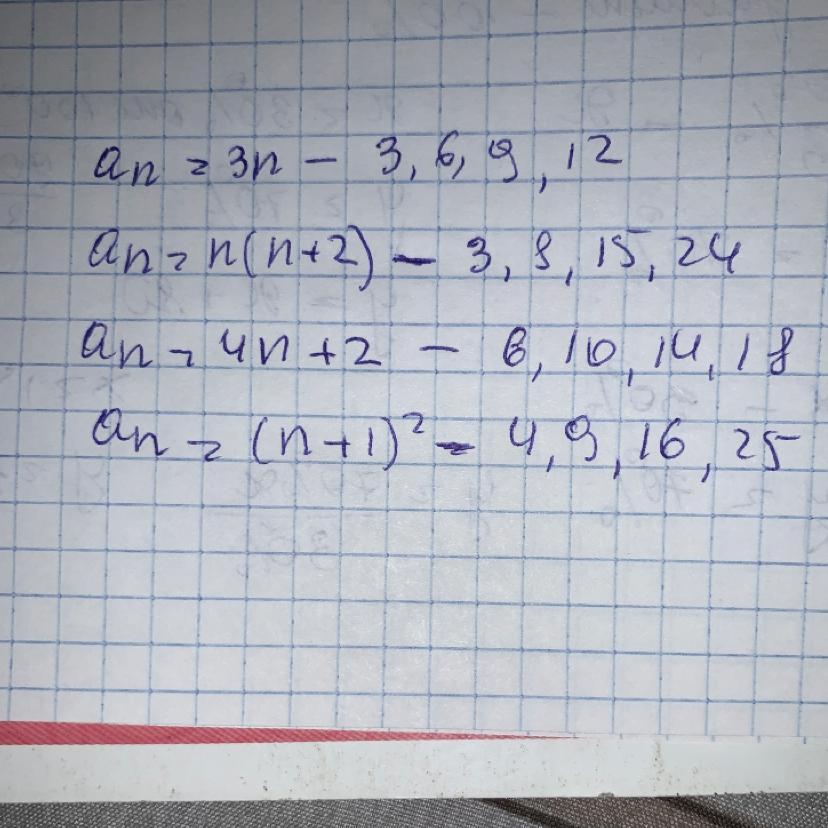 an = 3n - 3, 6, 9, 12
an = n(n+2) - 3, 8, 15, 24
an = 4n + 2 - 6, 10, 14, 18
an = (n+1)² - 4, 9, 16, 25